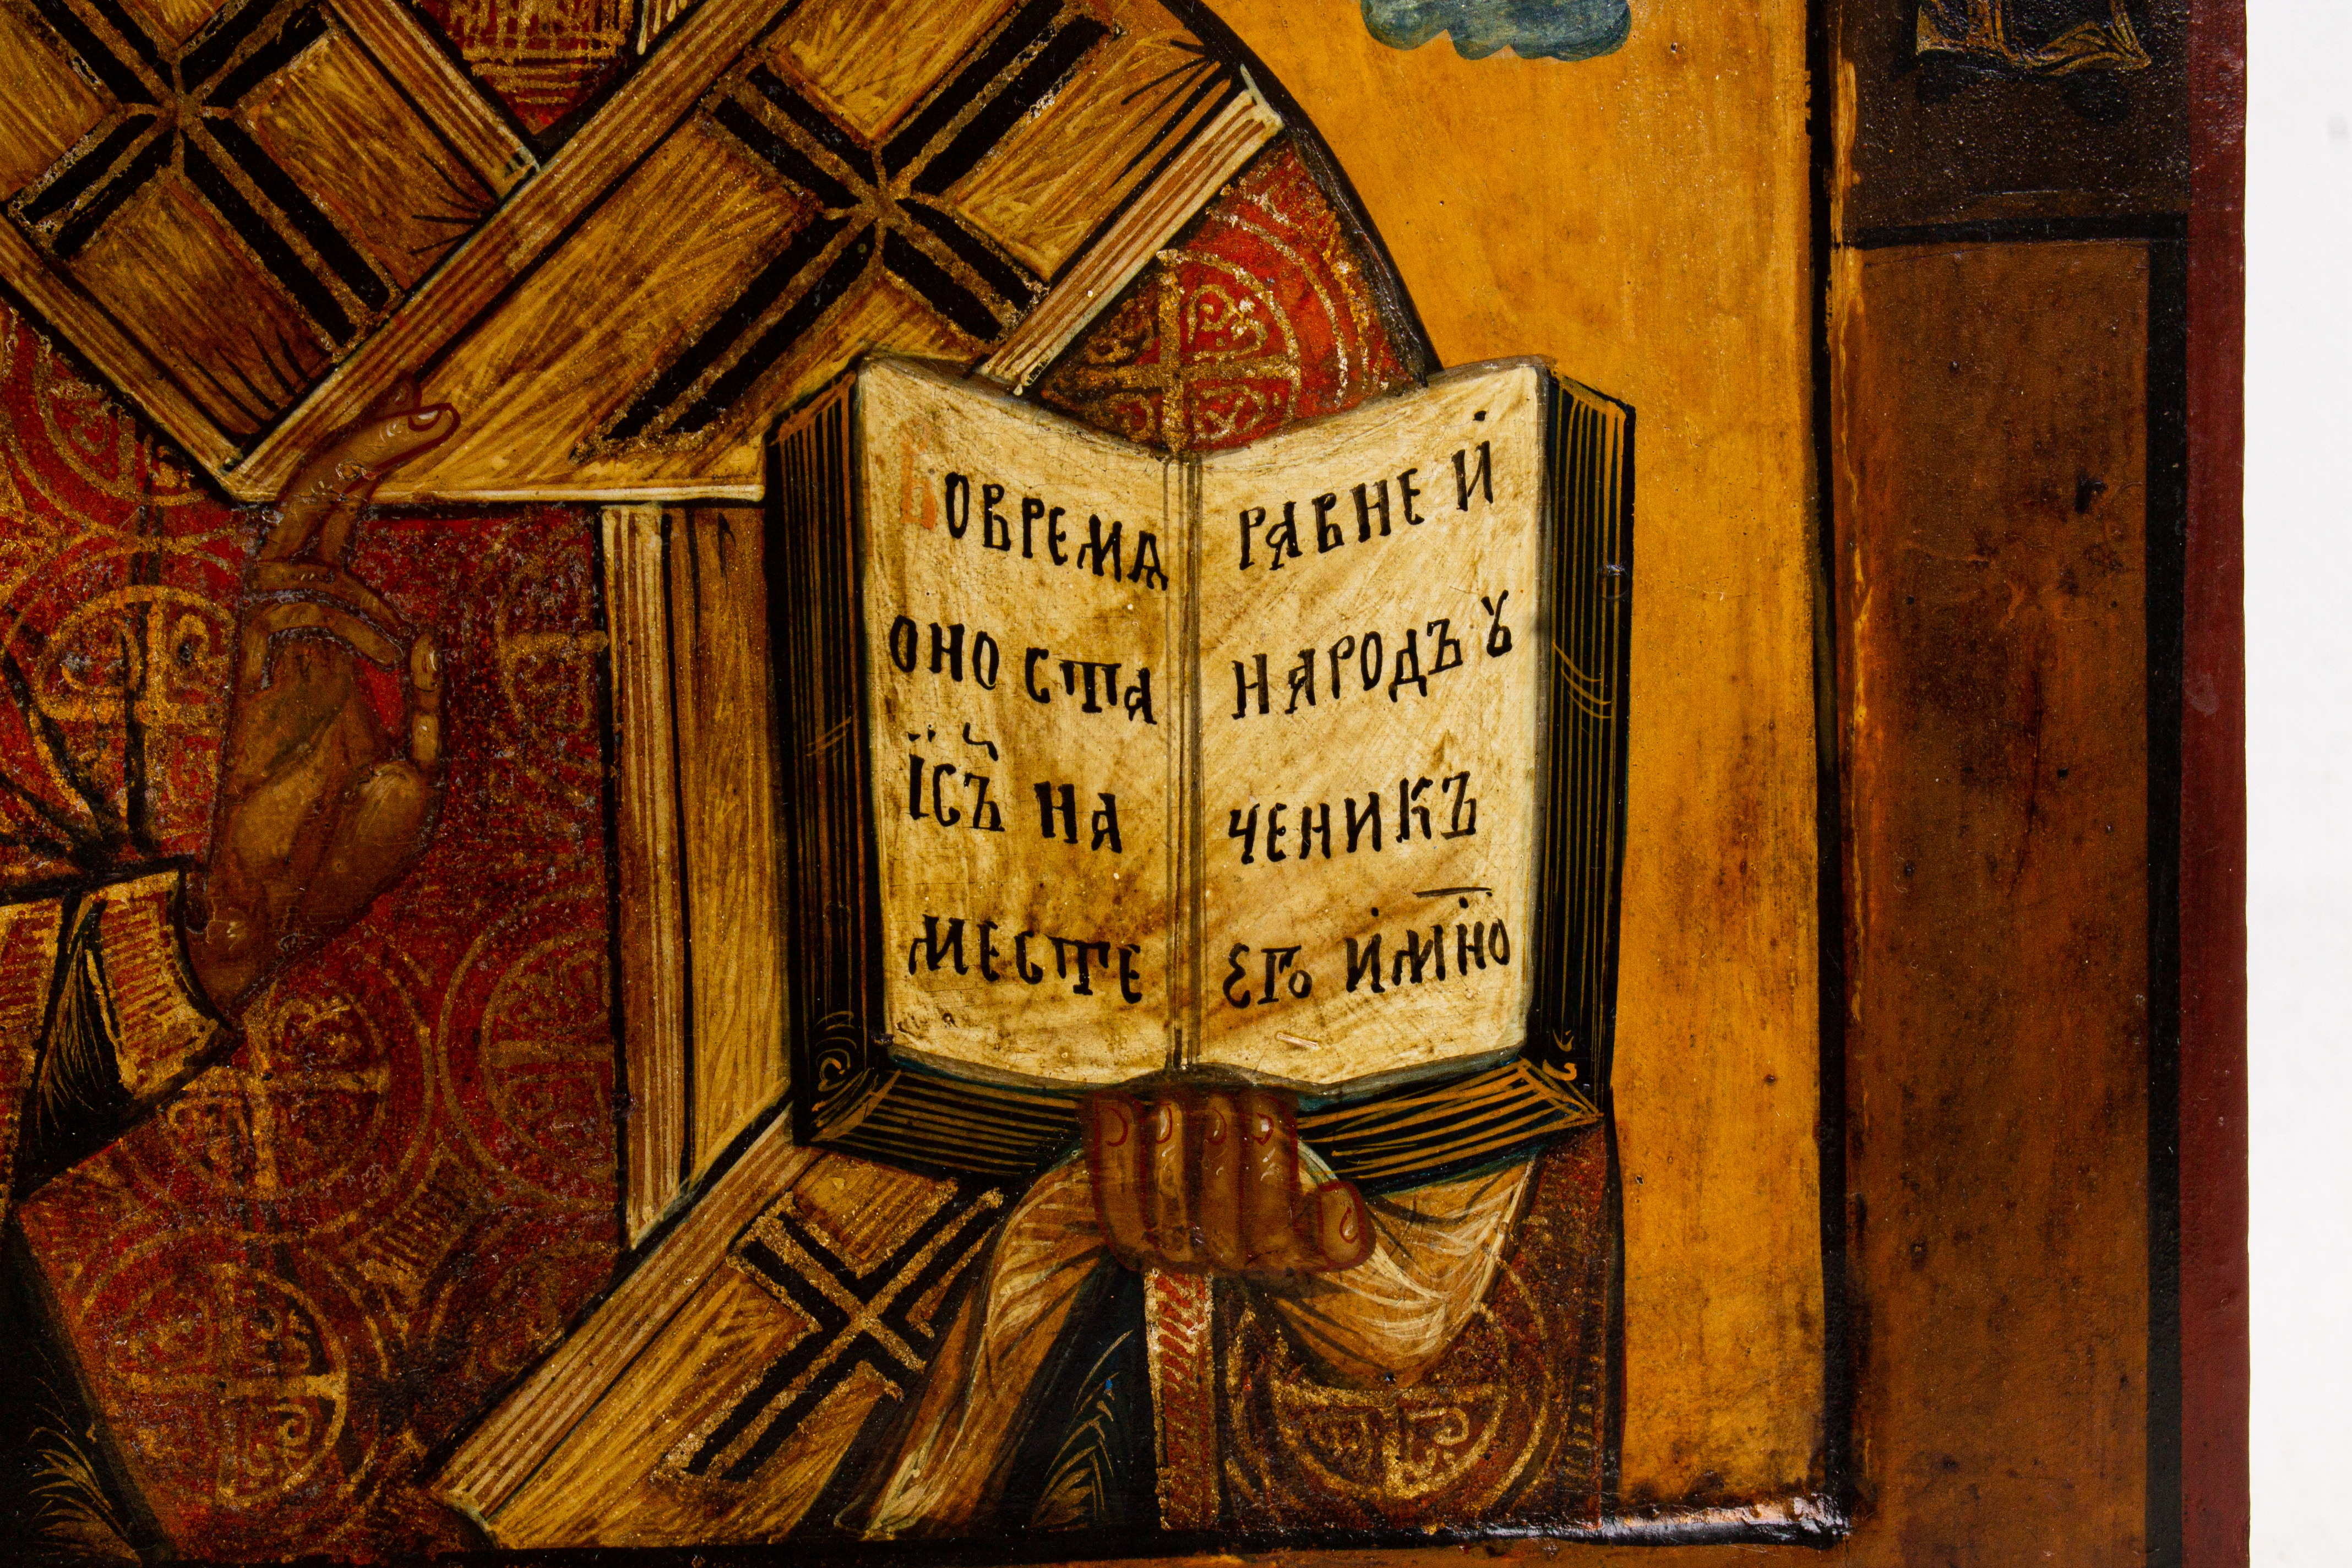 Вовремѧ
оно ста
їсъ на
месте
равне и
народъ ꙋ
ченикъ
егѡ и мно